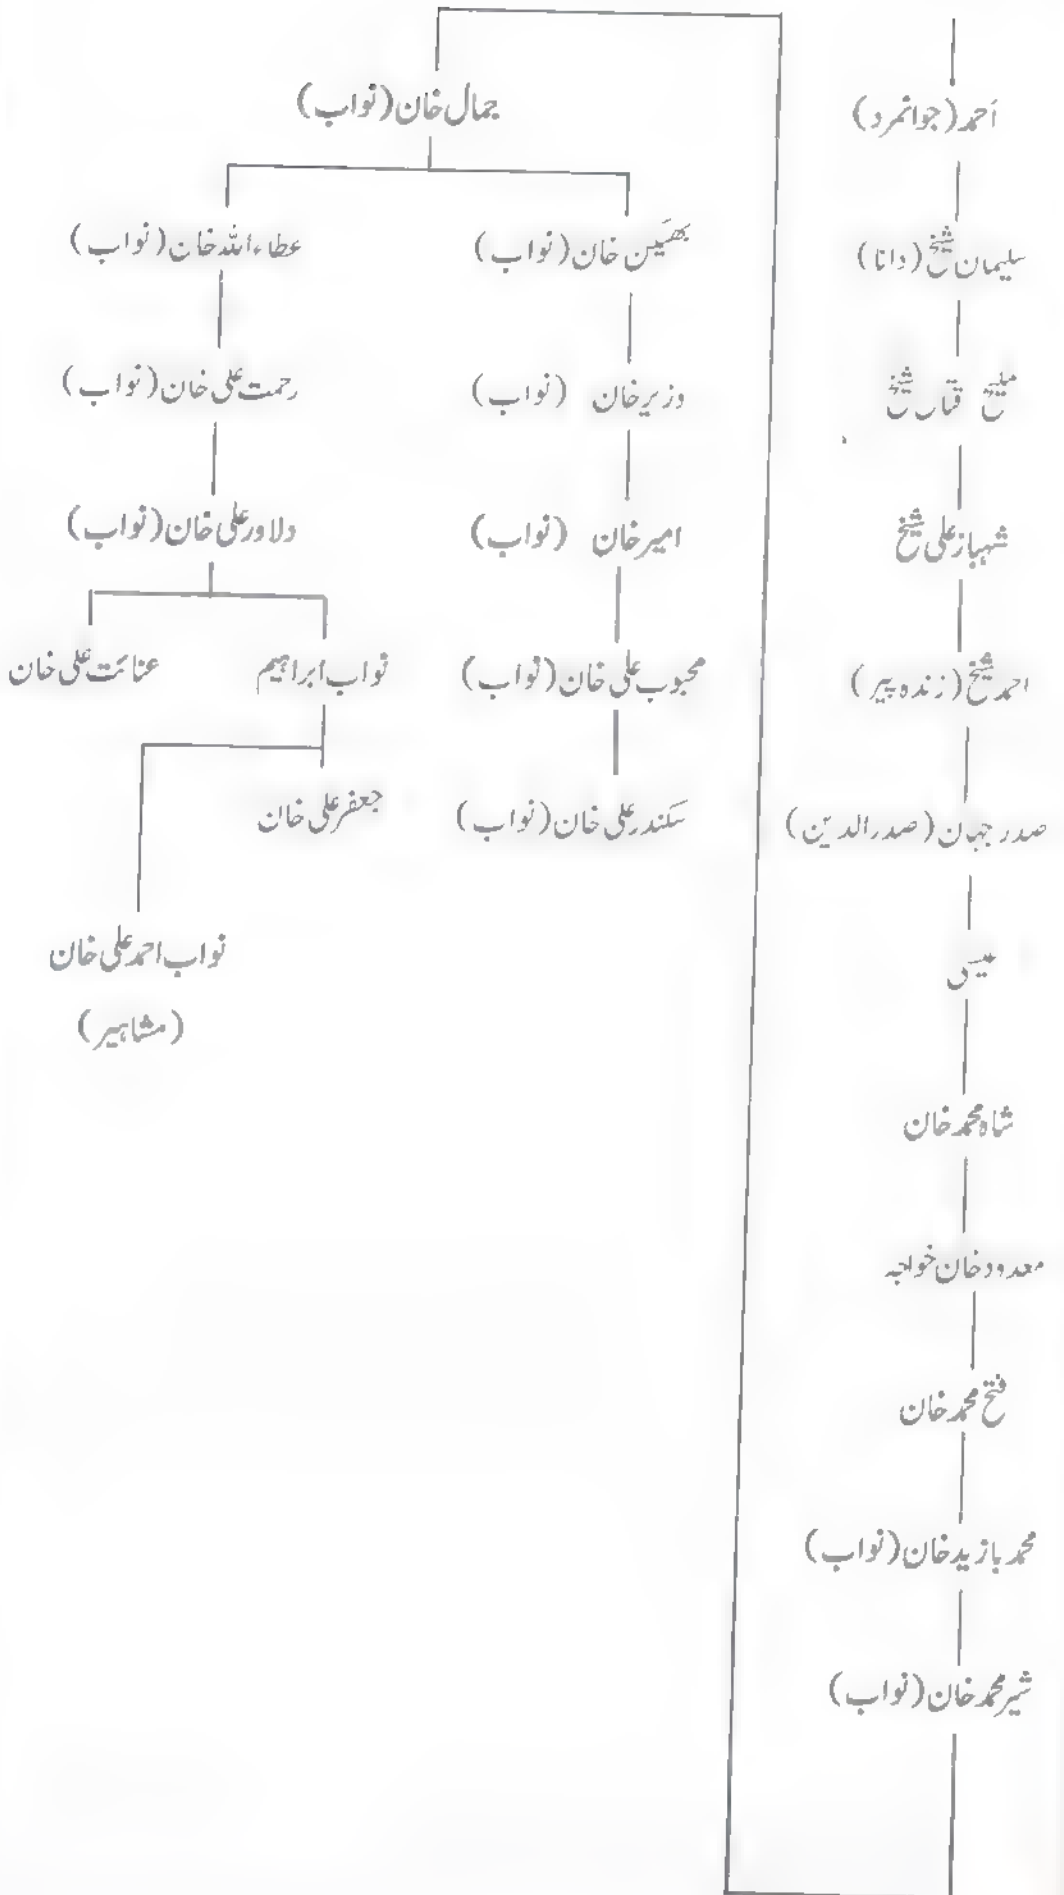 أحمد (جوانمرد)
سلیمان شیخ (دانا)
ملیح قتال شیخ
شہباز علی شیخ
احمد شیخ (زندہ پیر)
صدر جہان (صدر الدین)
عیسیٰ
شاہ محمد خان
معدود خان خواجہ
فتح محمد خان
محمد بازید خان (نواب)
شیر محمد خان (نواب)
جمال خان (نواب)
بھَیین خان (نواب)
عطاء اللہ خان (نواب)
وزیر خان (نواب)
رحمت علی خان (نواب)
امیر خان (نواب)
دلاور علی خان (نواب)
محبوب علی خان (نواب)
نواب ابراہیم
عنائت علی خان
سکندر علی خان (نواب)
جعفر علی خان
نواب احمد علی خان
(مشاہیر)